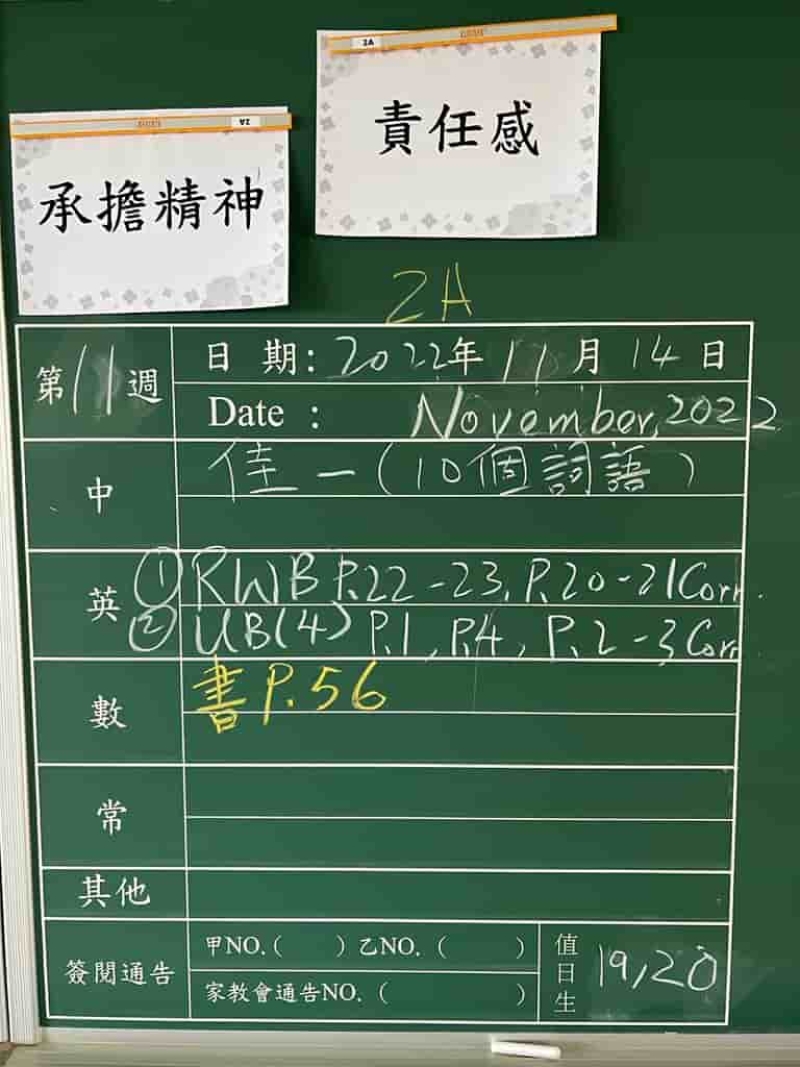 2A
責任感
2A
承擔精神
2A
第11週
日 期：2022年 11 月 14 日
Date : November, 2022
中
佳一（10個詞語）
英
① RWB P.22-23, P.20-21Corr.
② UB(4) P.1, P.4, P.2-3 Corr
數
書 P.56
常
其他
簽閱通告
甲NO.( ) 乙NO. ( )
家教會通告NO. ( )
值日生
19,20